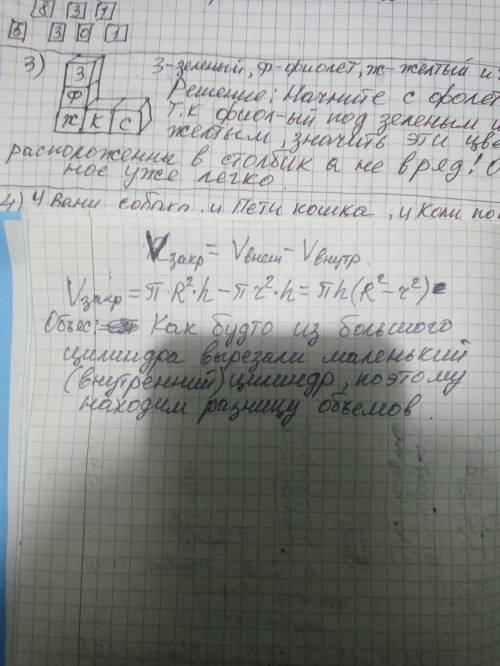 8 3 1
8 3 0 1
3) З З-зеленый, Ф-фиолет, ж-желтый и
Ф Решение: Начните с фолет
Ж К С Т.к фиол-ый под зеленым и
желтым, значить эти цве
расположенны в столбик а не в ряд! О
ное уже легко.
4) У Вани собака, у Пети кошка, у Коли по
Vзакр = Vвнеш - Vвнутр.
Vзакр = π·R²·h - πr²·h = πh(R²-r²)
Объяс: Как будто из большого
цилиндра вырезали маленький
(внутренний) цилиндр, поэтому
находим разницу объемов.